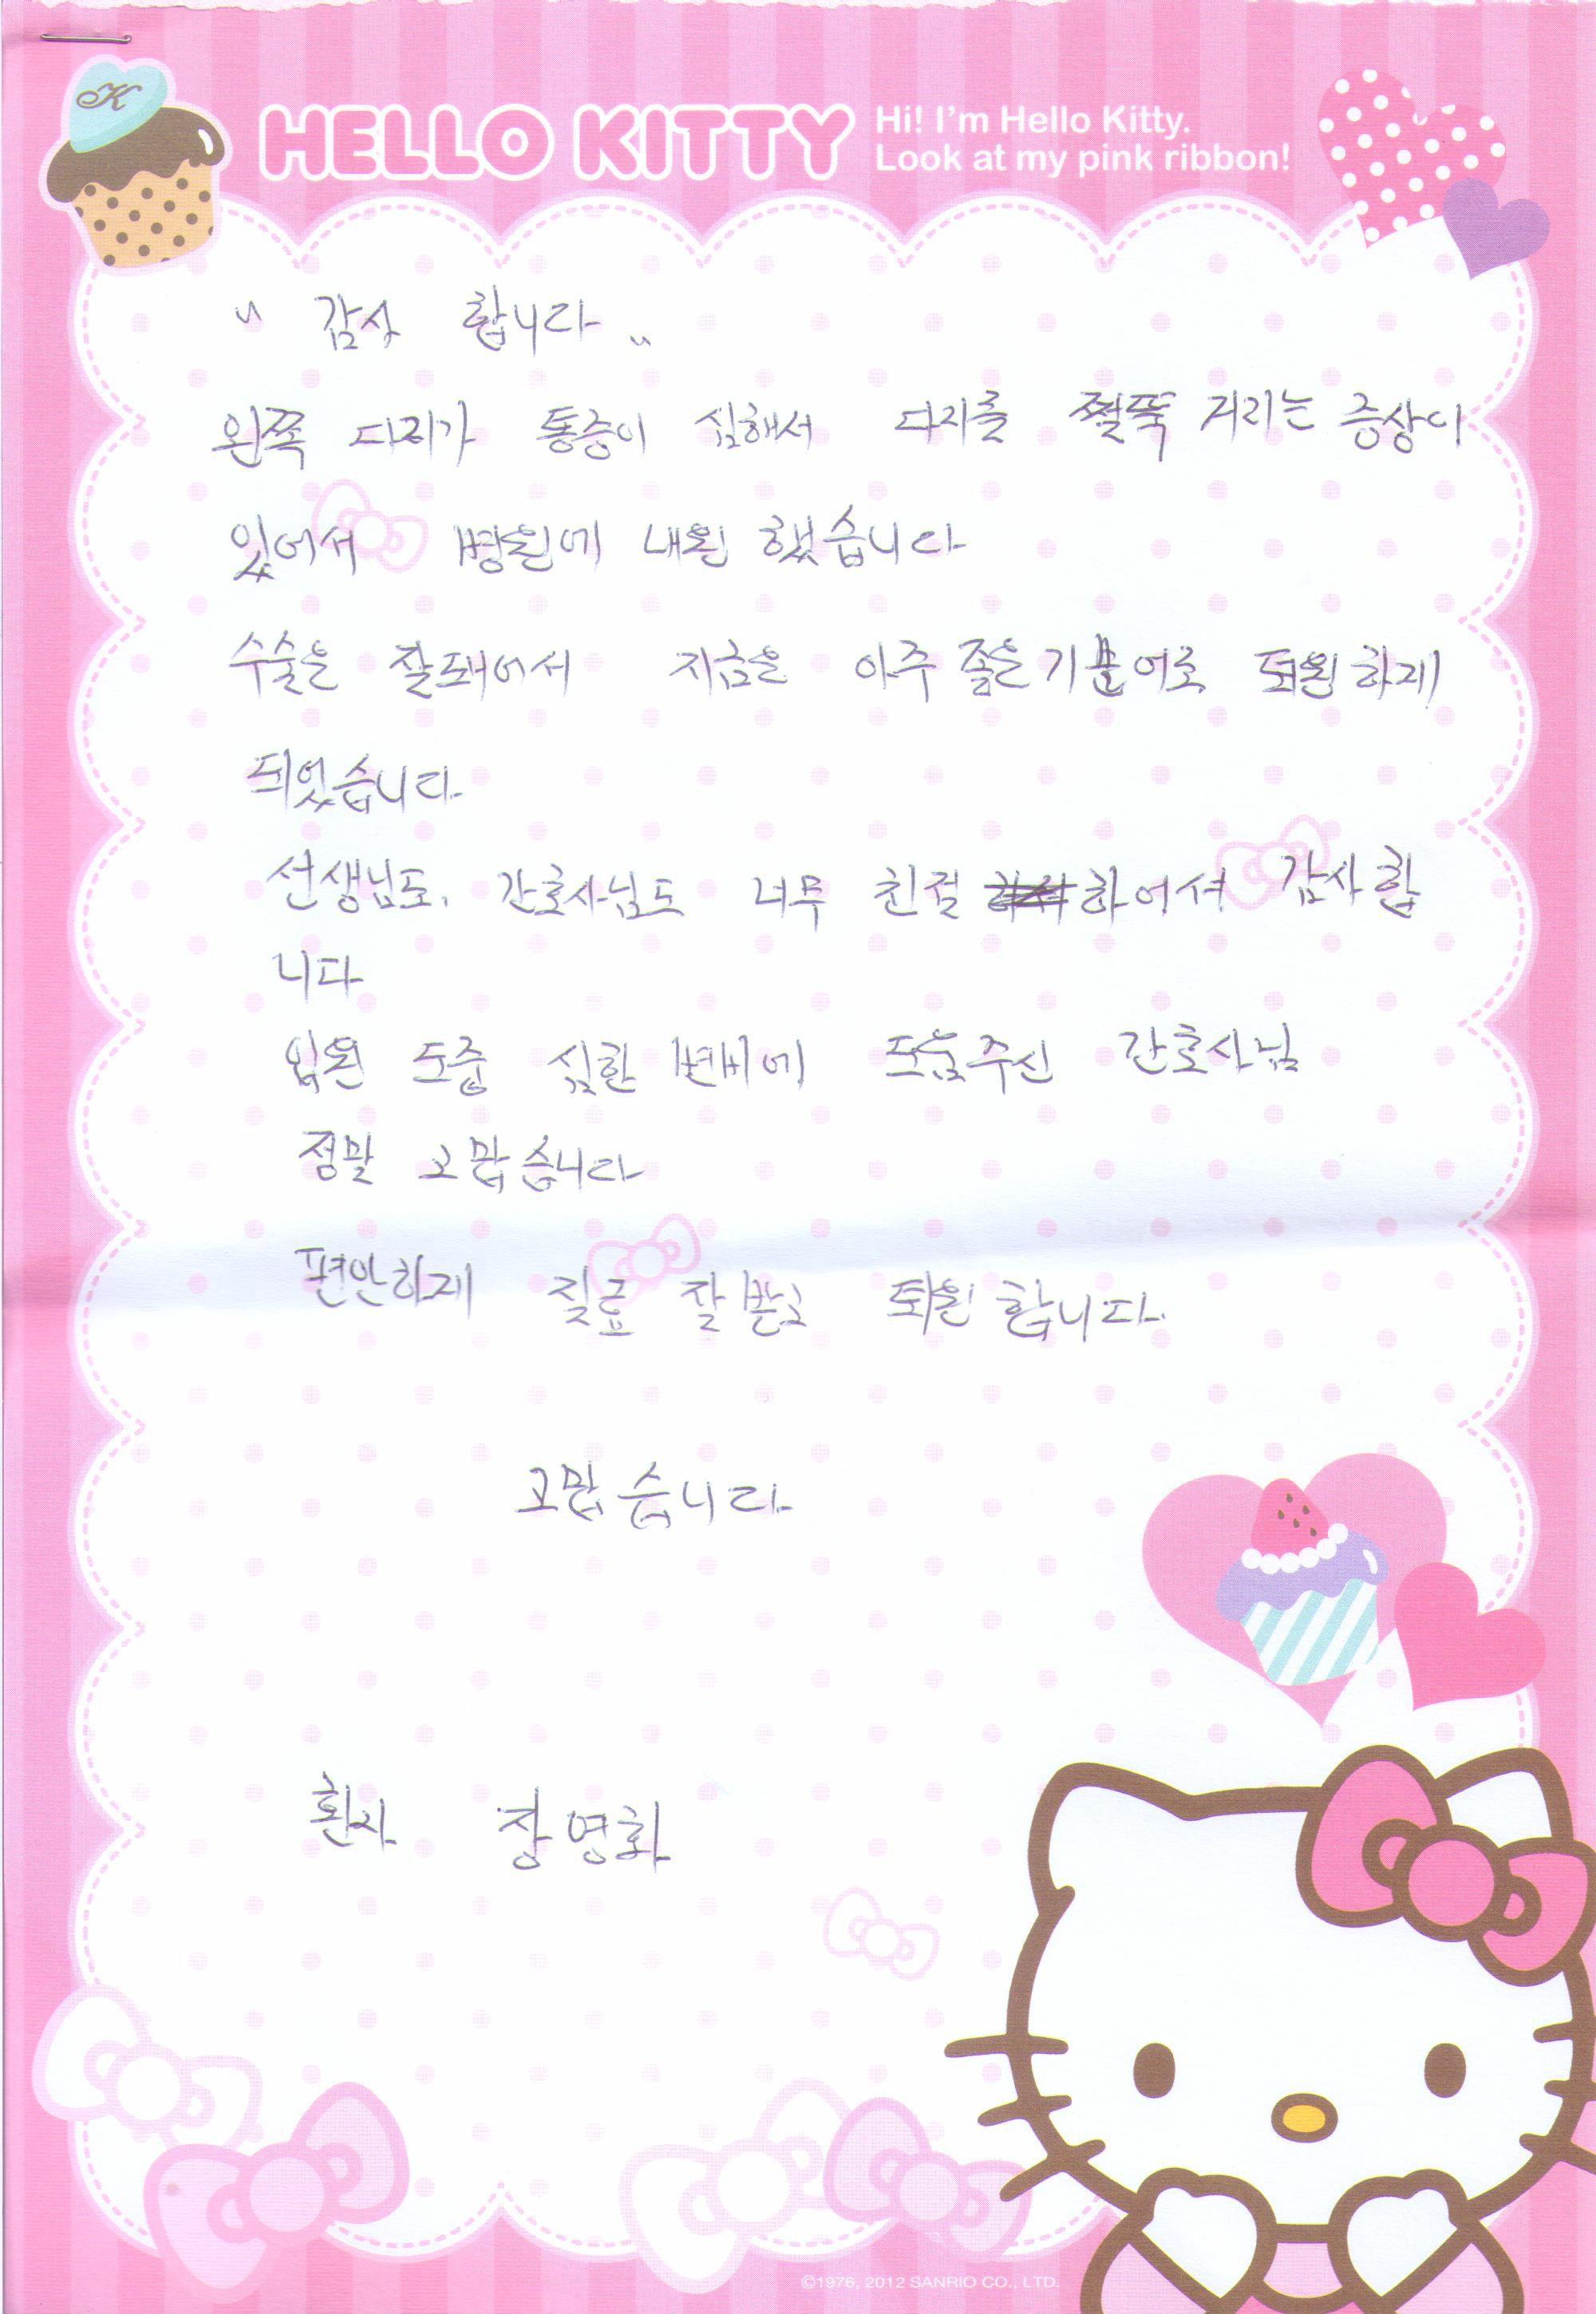 K
HELLO KITTY
Hi! I'm Hello Kitty.
Look at my pink ribbon!
" 감사 합니다 "
왼쪽 다리가 통증이 심해서 다리를 쩔뚝 거리는 증상이
있어서 병원에 내원 했습니다
수술은 잘돼어서 지금은 아주 좋은 기분어로 퇴원 하게
되었습니다.
선생님도, 간호사님도 너무 친절 하어셔 감사합
니다
입원 도중 심한 변비에 도움주신 간호사님
정말 고맙습니다
편안하게 질료 잘 받고 퇴원 합니다.
고맙습니다
환자 장영화
©1976, 2012 SANRIO CO., LTD.